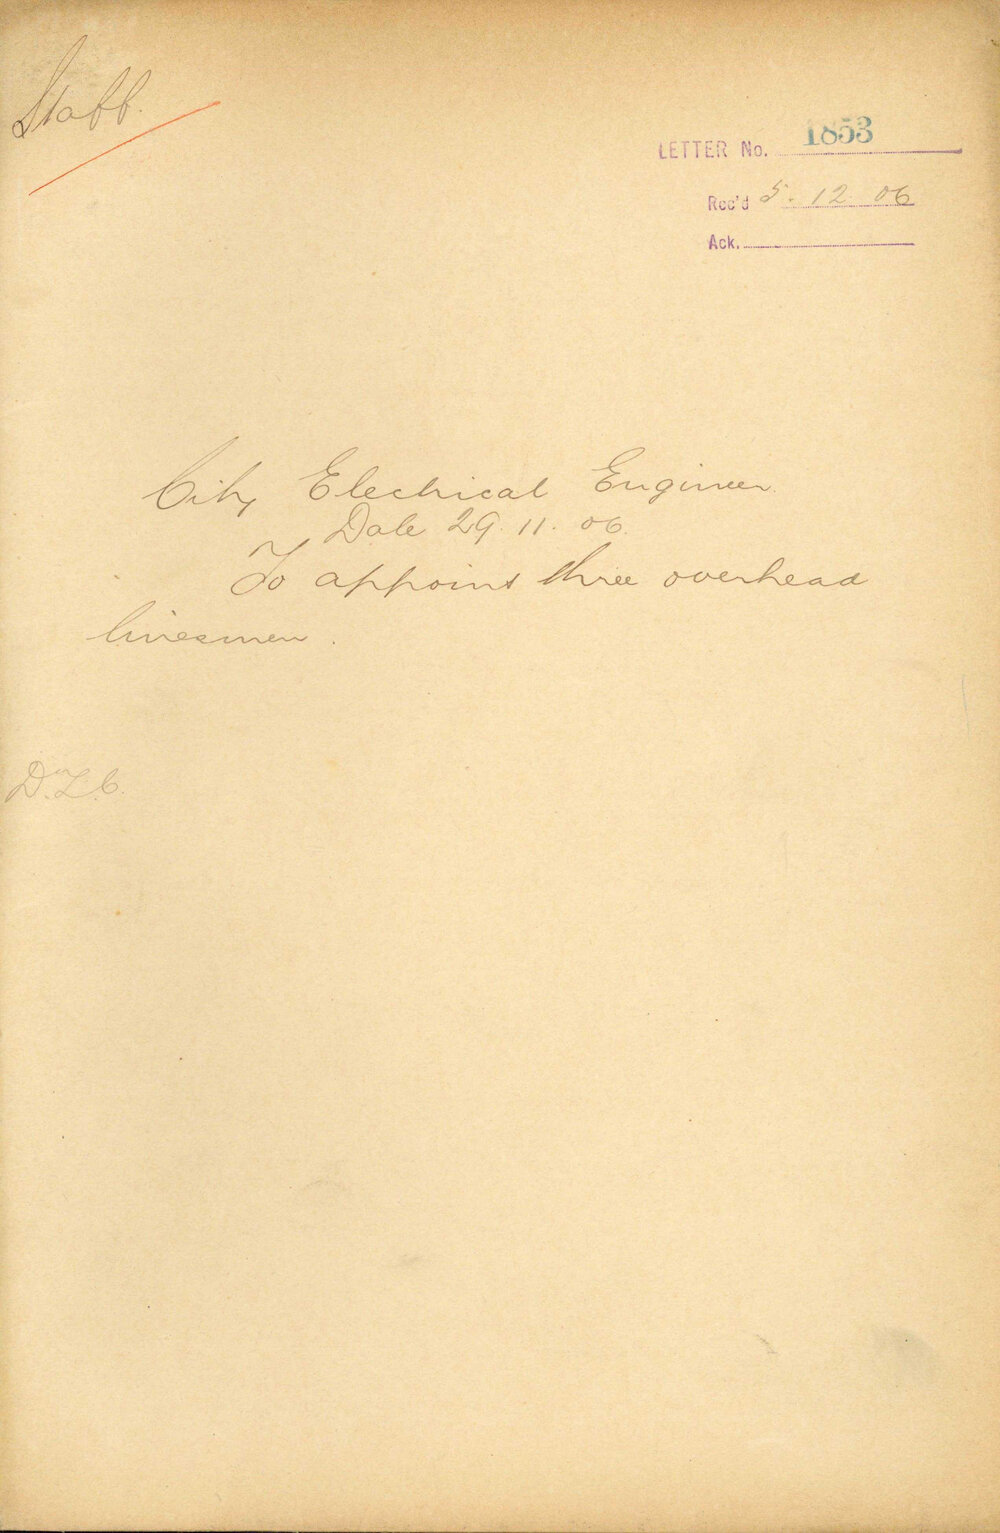 Staff.
LETTER No. 1853
Rec'd 5. 12. 06
Ack.
City Electrical Engineer.
Date 29. 11. 06.
To appoint three overhead
linesmen.